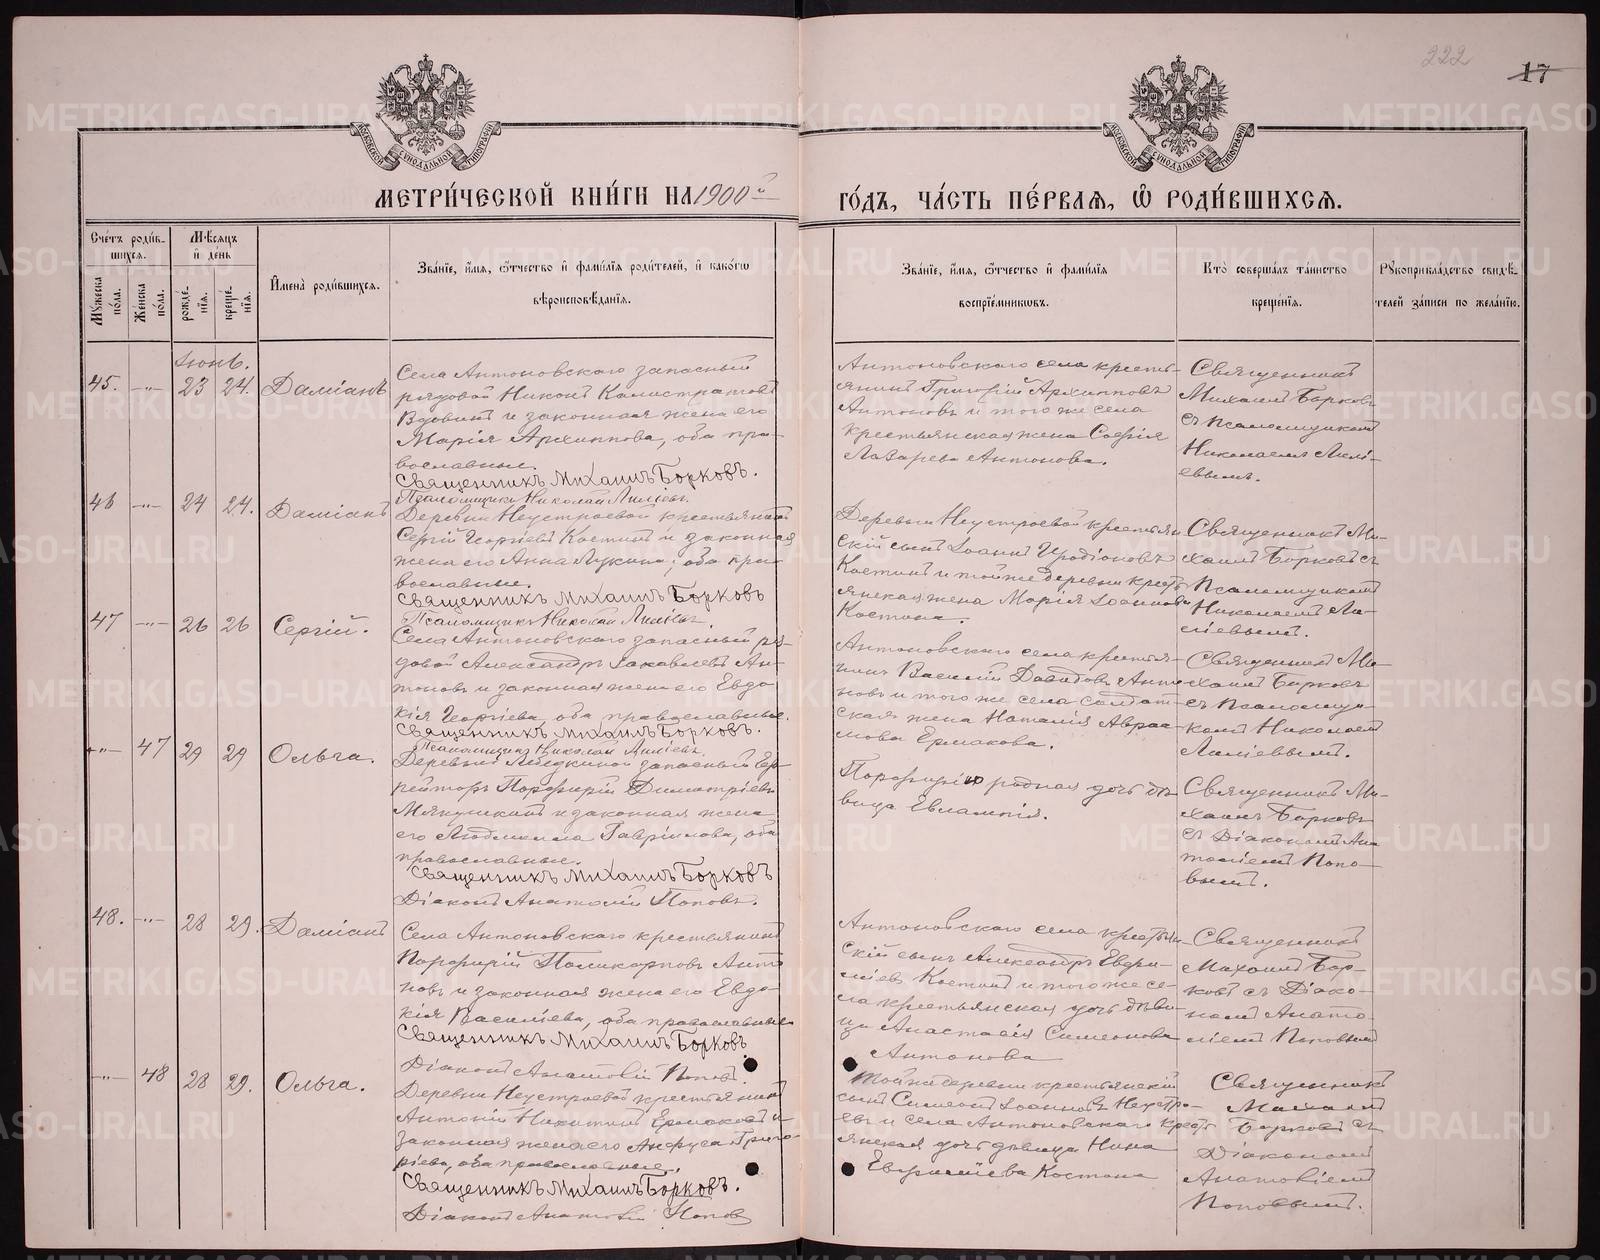 222
17
МОСКОВСКОЙ СѴНОДАЛЬНОЙ ТИПОГРАФІИ
МОСКОВСКОЙ СѴНОДАЛЬНОЙ ТИПОГРАФІИ
МЕТРИ́ЧЕСКОЙ КНИ́ГИ НА 1900й
ГО́ДЪ, ЧА́СТЬ ПЕ́РВАѦ, Ѡ҆ РОДИ́ВШИХСѦ.
Сче́тъ роди́в-
шихсѧ.
Мꙋжеска по́ла.
Же́нска по́ла.
Мѣ́сѧцъ
и҆ де́нь
рожде́-
нїѧ.
креще́-
нїѧ.
И҆мена̀ роди́вшихсѧ.
Зва́нїе, и҆́мѧ, ѻ҆́тчество и҆ фами́лїѧ роди́телей, и҆ како́гѡ
вѣроисповѣ́данїѧ.
Зва́нїе, и҆́мѧ, ѻ҆́тчество и҆ фами́лїѧ
воспрїе́мникѡвъ.
Кто̀ соверша́лъ та́инство
креще́нїѧ.
Рꙋкоприкла́дство свидѣ́-
телей за́писи по жела́нїю.
Іюнь.
45. -"- 23 24. Даміанъ
Села Антоновскаго запасный
рядовой Никонъ Калистратовъ
Вдовинъ и законная жена его
Марія Архиппова, оба пра-
вославные.
Священникъ Михаилъ Борковъ.
Псаломщикъ Николай Лиліевъ.
Антоновскаго села кресть-
янинъ Григорій Архипповъ
Антоновъ и того же села
крестьянская жена Софія
Лазарева Антонова.
Священникъ
Михаилъ Борковъ
съ Псаломщикомъ
Николаемъ Лилі-
евымъ.
46 -"- 24 24. Даміанъ
Деревни Неустроевой крестьянинъ
Сергій Георгіевъ Костинъ и законная
жена его Анна Лукина, оба пра-
вославные.
Священникъ Михаилъ Борковъ
Псаломщикъ Николай Лиліевъ.
Деревни Неустроевой крестьян-
скій сынъ Іоаннъ Иродіоновъ
Костинъ и той же деревни кресть-
янская жена Марія Іоаннова
Костина.
Священникъ Ми-
хаилъ Борковъ съ
Псаломщикомъ
Николаемъ Ли-
ліевымъ.
47 -"- 26 26 Сергій.
Села Антоновскаго запасный ря-
довой Александръ Іаковлевъ Ан-
тоновъ и законная жена его Евдо-
кія Георгіева, оба православные.
Священникъ Михаилъ Борковъ.
Псаломщикъ Николай Лиліевъ.
Антоновскаго села крестья-
нинъ Василій Давидовъ Анто-
новъ и того же села солдат-
ская жена Наталія Авраа-
мова Ермакова.
Священникъ Ми-
хаилъ Борковъ
съ Псаломщи-
комъ Николаемъ
Лиліевымъ.
-"- 47 29 29 Ольга.
Деревни запасный Еф-
рейторъ Порфирій Димитріевъ
Мякушкинъ и законная жена
его Людмилла Гавріилова, оба
православные.
Священникъ Михаилъ Борковъ
Діаконъ Анатолій Поповъ.
Порфирія родная дочь дѣ-
вица Евлампія.
Священникъ Ми-
хаилъ Борковъ
съ Діакономъ Ана-
толіемъ Попо-
вымъ.
48. -"- 28 29. Даміанъ
Села Антоновскаго крестьянинъ
Порфирій Поликарповъ Анто-
новъ и законная жена его Евдо-
кія Василіева, оба православные
Священникъ Михаилъ Борковъ
Діаконъ Анатолій Поповъ.
Антоновскаго села крестьян-
скій сынъ Александръ
Костинъ и того же се-
ла крестьянская дочь дѣви-
ца Анастасія Симеонова
Антонова
Священникъ
Михаилъ Бор-
ковъ съ Діако-
номъ Анато-
ліемъ Поповымъ
-"- 48 28 29. Ольга.
Деревни Неустроевой крестьянинъ
Антоній Никитинъ Ермаковъ и
законная жена его Анфуса Григо-
ріева, оба православные.
Священникъ Михаилъ Борковъ.
Діаконъ Анатолій Поповъ
Той же деревни крестьянскій
сынъ Симеонъ Іоанновъ Неустро-
евъ и села Антоновскаго кресть-
янская дочь дѣвица Нина
Костина
Священникъ
Михаилъ
Борковъ съ
Діакономъ
Анатоліемъ
Поповымъ.
METRIKI.GASO-URAL.RU